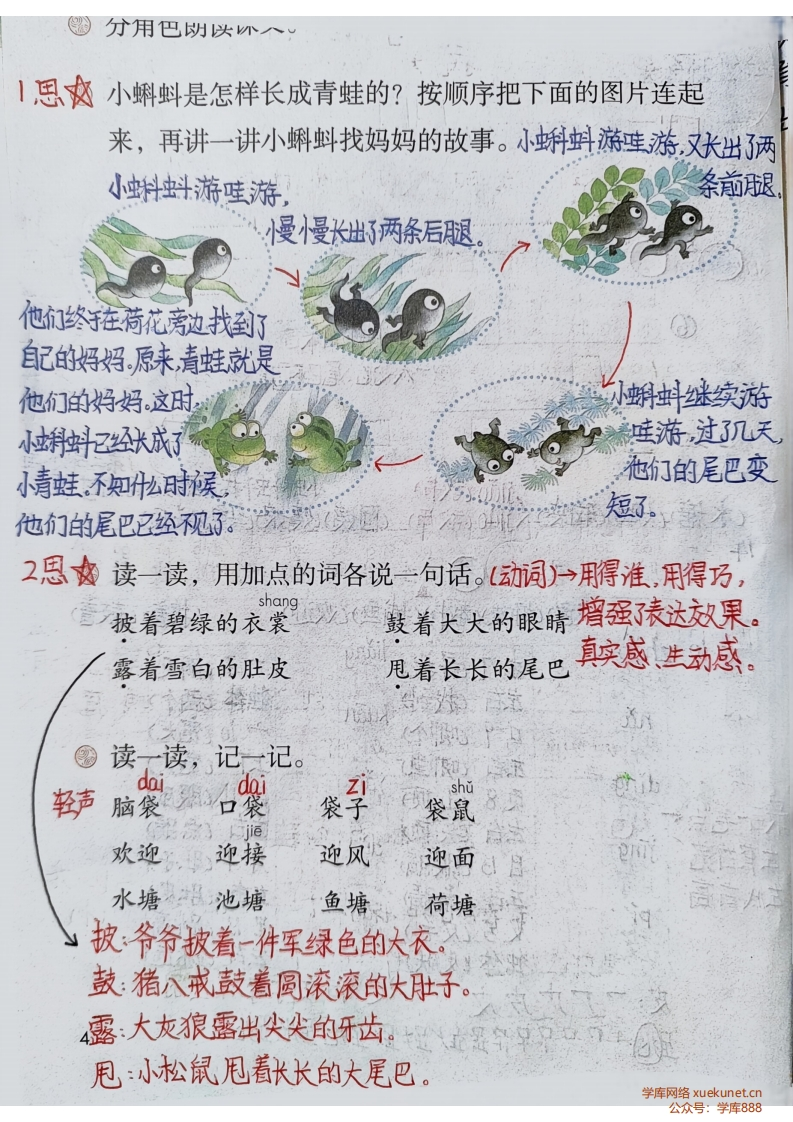 分角色朗读课文。
1思☆ 小蝌蚪是怎样长成青蛙的？按顺序把下面的图片连起
来，再讲一讲小蝌蚪找妈妈的故事。
小蝌蚪游哇游，又长出了两
条前腿。
小蝌蚪游哇游，
慢慢长出了两条后腿。
他们终于在荷花旁边找到了
自己的妈妈。原来，青蛙就是
他们的妈妈。这时，
小蝌蚪已经长成了
小青蛙。不知什么时候，
他们的尾巴已经不见了。
小蝌蚪继续游
哇游，过了几天，
他们的尾巴变
短了。
2思☆ 读一读，用加点的词各说一句话。(动词)→用得准、用得巧，
增强了表达效果。
真实感、生动感。
shang
披着碧绿的衣裳 鼓着大大的眼睛
露着雪白的肚皮 甩着长长的尾巴
读一读，记一记。
轻声 dai dai zi shǔ
脑袋 口袋 袋子 袋鼠
jiē
欢迎 迎接 迎风 迎面
水塘 池塘 鱼塘 荷塘
披：爷爷披着一件军绿色的大衣。
鼓：猪八戒鼓着圆滚滚的大肚子。
露：大灰狼露出尖尖的牙齿。
4
甩：小松鼠甩着长长的大尾巴。
学库网络 xuekunet.cn
公众号：学库888